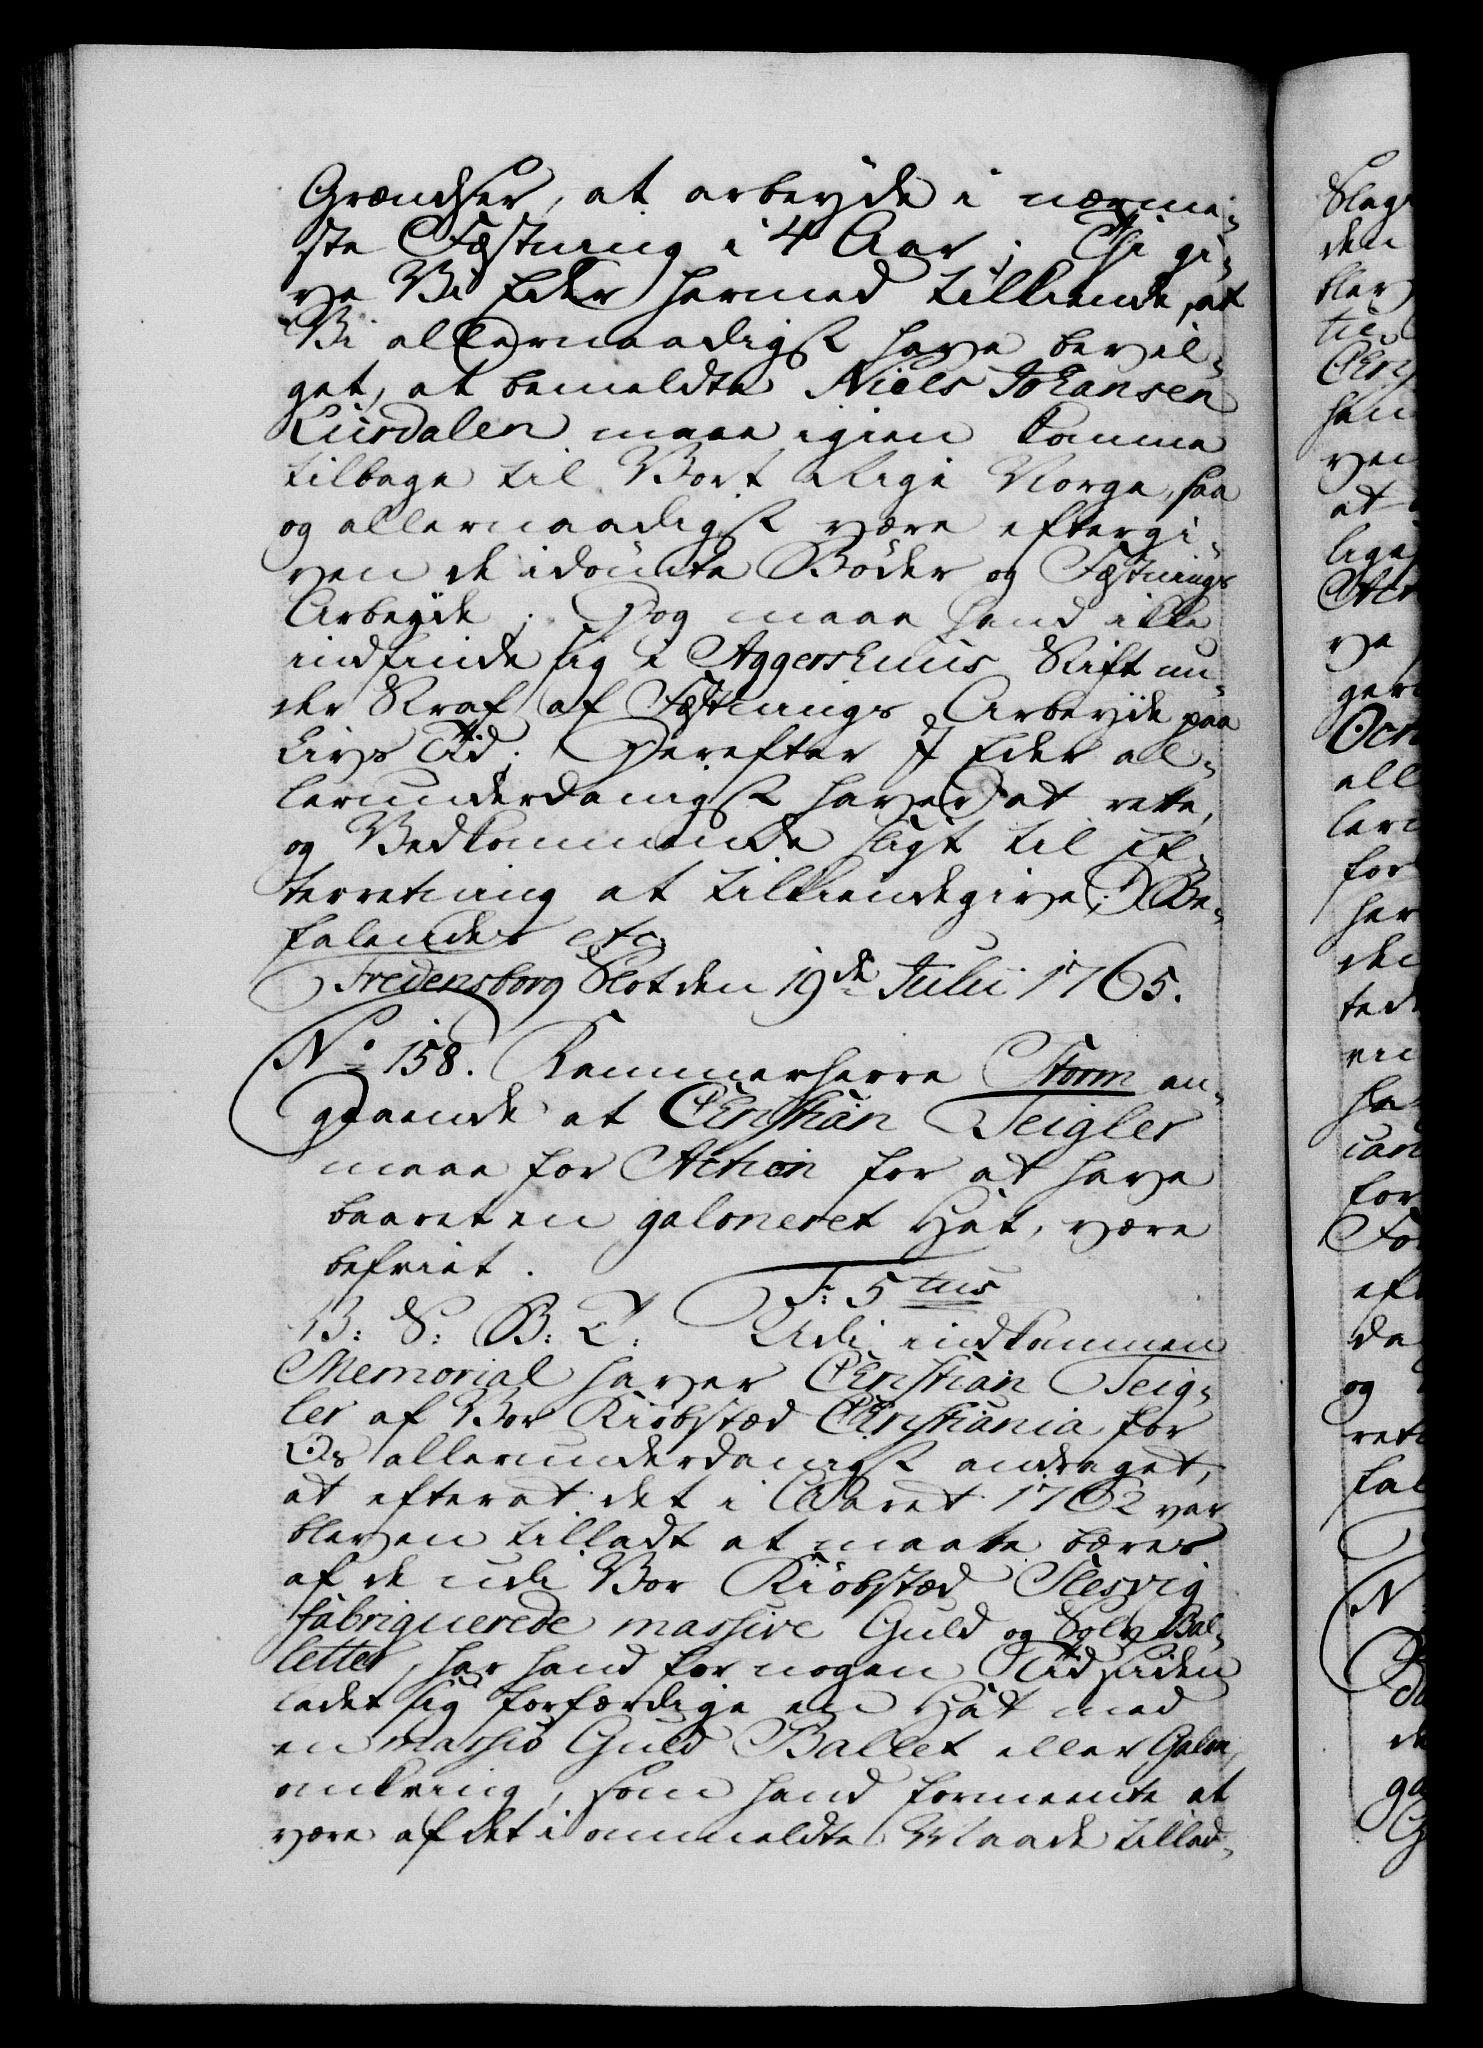 Grændser, at arbeyde i nærme-
ste Fæstning i 4 Aar; Thi gi-
ve Vi Eder hermed tilkiende, at
Vi allernaadigst have bevil-
get, at bemeldte Niels Johansen
Liusdalen maae igien komme
tilbage til Vort Rige Norge, saa
og allernaadigst være eftergi-
ven de idömte Böder og Fæstnings
Arbeyde; Dog maae hand ikke
indfinde sig i Aggershuus Stift un-
der Straf af Fæstnings Arbeyde paa
Livs Tid. Derefter I Eder al-
lerunderdanigst haver at rette,
og Vedkommende sligt til ef-
terretning at tilkiendegive; Be-
falendes etc.
Fredensborg Slot den 19de Julii 1765.
No 158. Kammerherre Storm an-
gaaende at Christian Teigler
maae for Action for at have
baaret en galoneret Hat, være
befriet.
F: 5tus
V: S: G: T: Udi indkommen
Memorial haver Christian Teig-
ler af Vor Kiöbstæd Christiania for
Os allerunderdanigst andraget,
at efterat det i Aaret 1762 var
bleven tilladt at maatte bæres
af de udi Vor Kiöbstæd Slesvig
fabriquerede massive Guld og Sölv Bal-
letter, har hand for nogen Tid siden
ladet sig forfærdige en Hat med
en massiv Guld Ballet eller Galon
omkring, som hand formeente at
være af det i ommeldte Maade tillad-